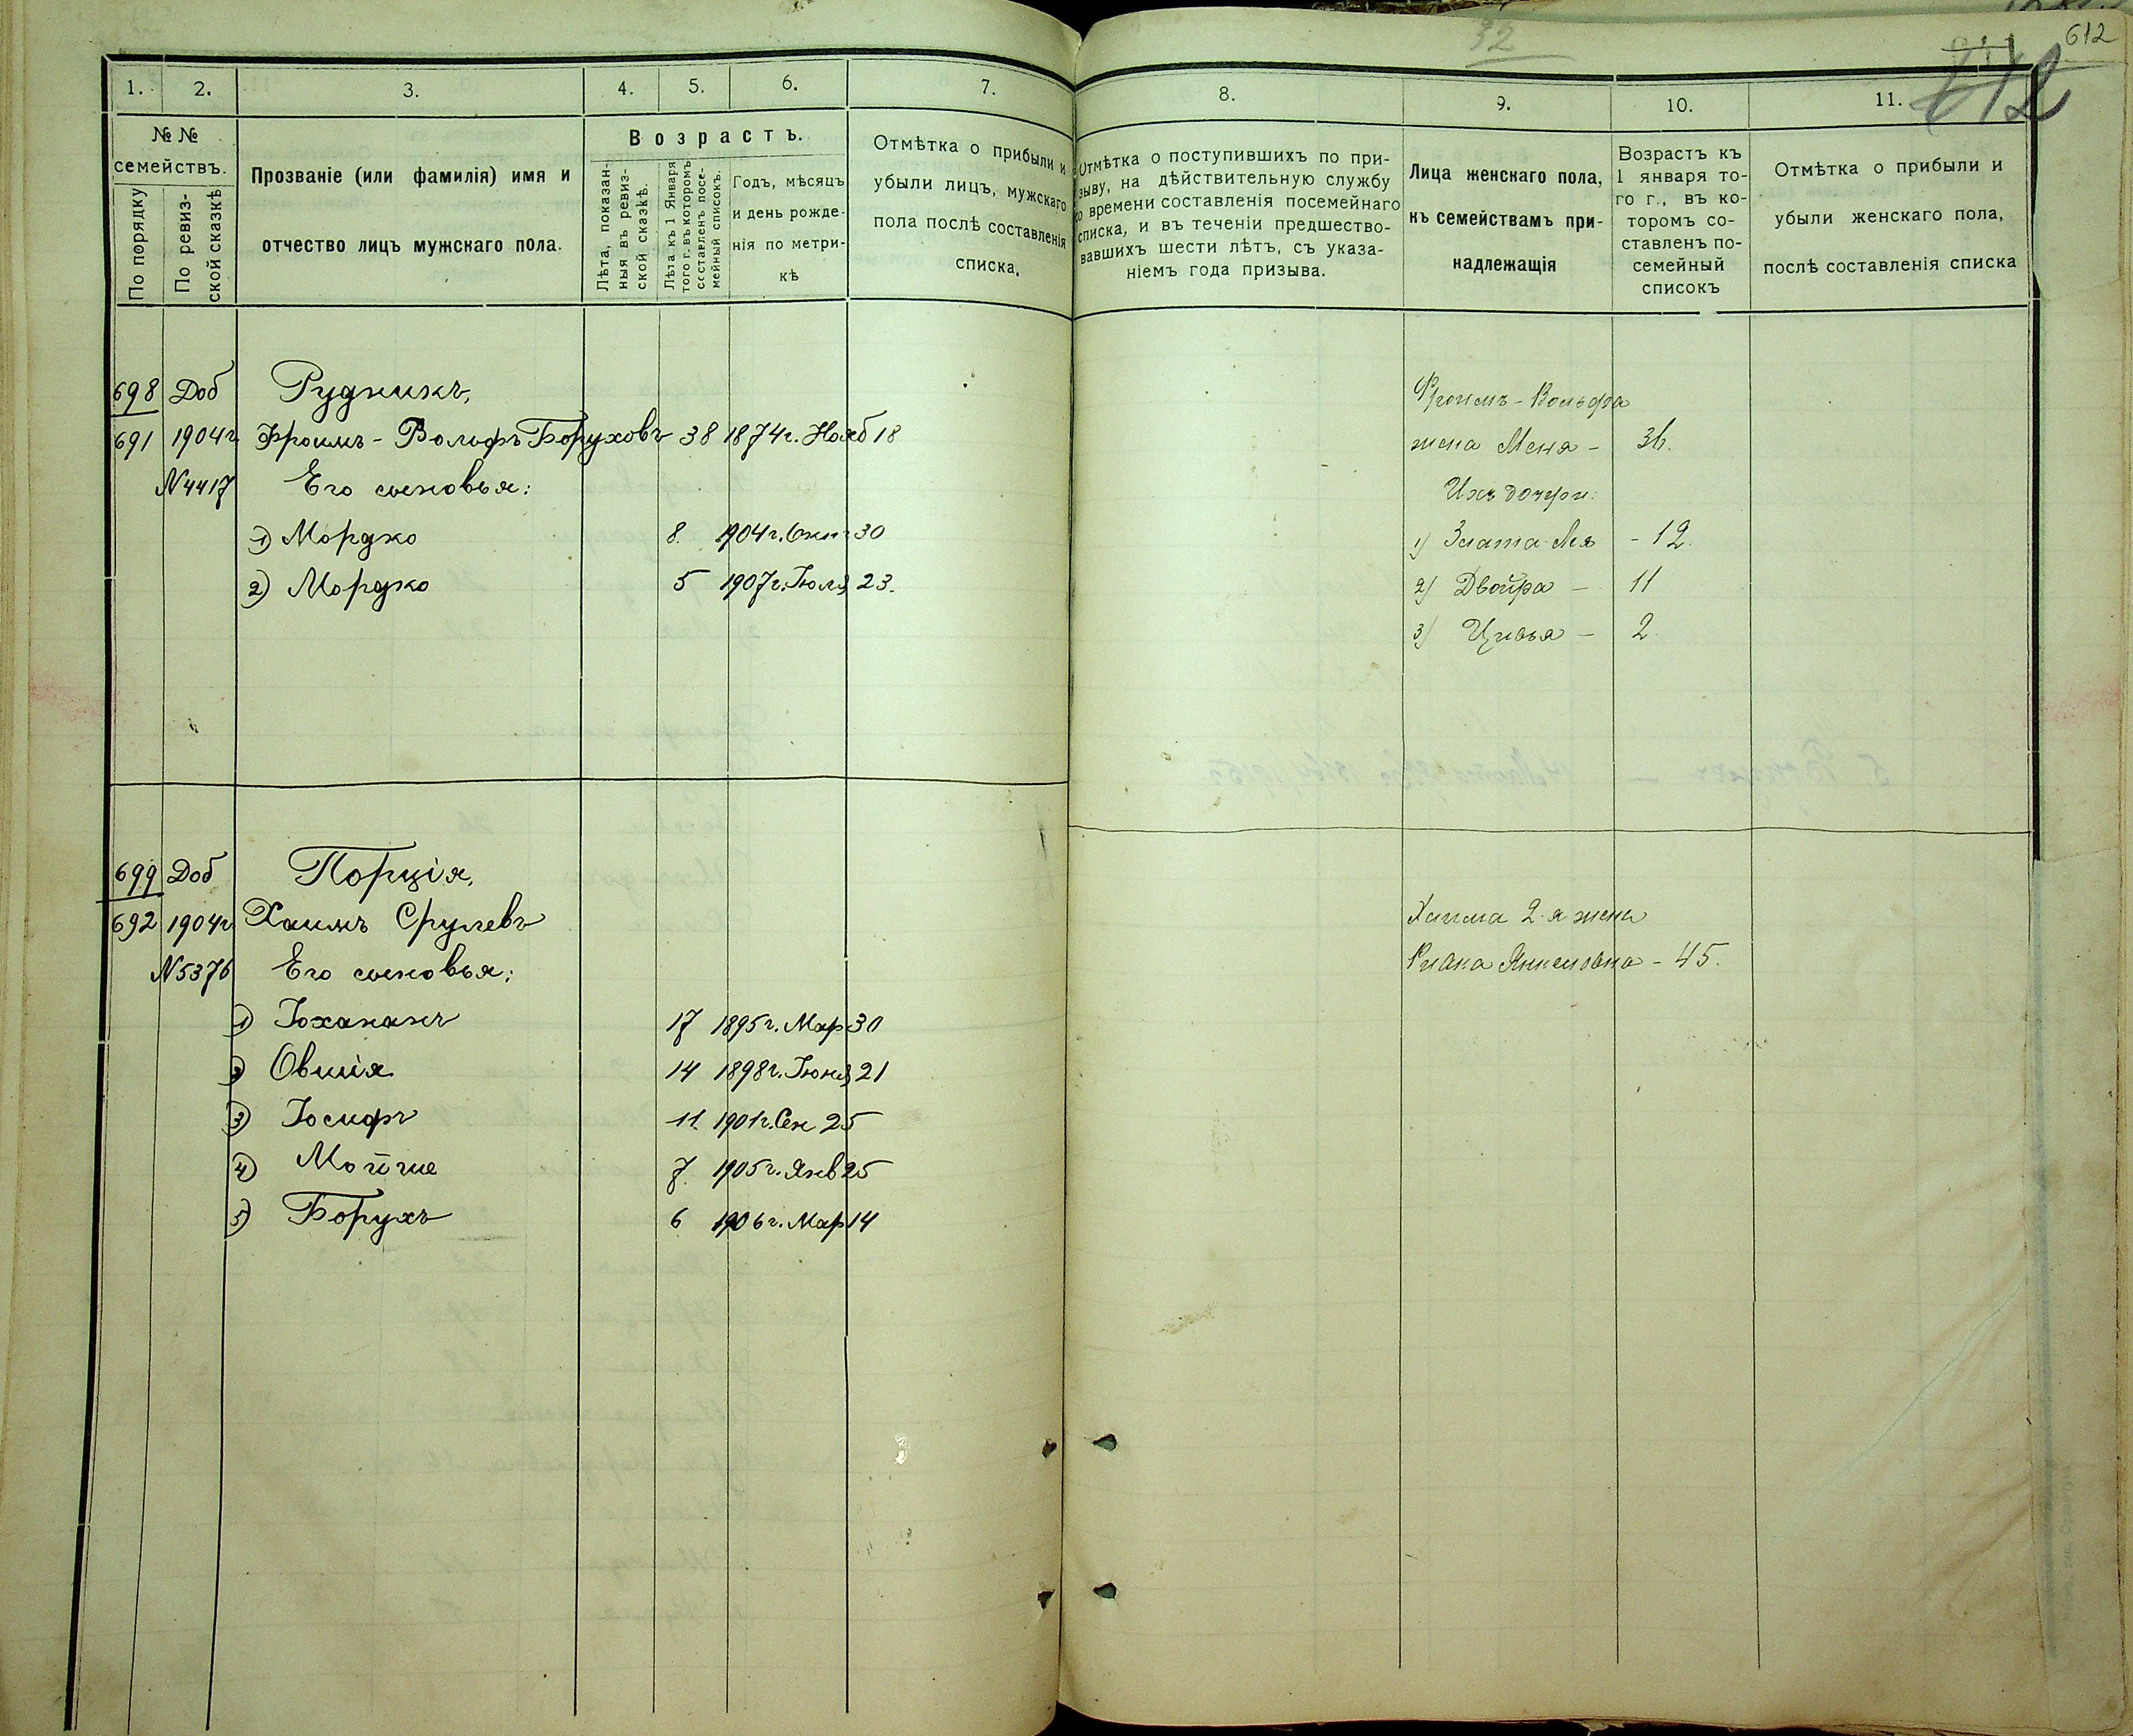 32
612
612
1. 2. 3. 4. 5. 6. 7.
№ №
семействъ.
По порядку
По ревиз-
ской сказкѣ
Прозваніе (или фамилія) имя и
отчество лицъ мужскаго пола.
Возрастъ.
Лѣта, показан-
ныя въ ревиз-
ской сказкѣ.
Лѣта къ 1 Января
того г. въ которомъ
составленъ посе-
мейный списокъ.
Годъ, мѣсяцъ
и день рожде-
нія по метри-
кѣ
Отмѣтка о прибыли и
убыли лицъ, мужскаго
пола послѣ составленія
списка.
698 Доб Рудникъ,
691 1904г. Фроимъ-Вольфъ Боруховъ 38 1874г. Нояб 18
N4417 Его сыновья:
1) Мордко 8. 1904г. Окт 30
2) Мордко 5 1907г. Іюля 23.
699 Доб Порція,
692 1904г Хаимъ Срулевъ
N5376 Его сыновья:
1) Іохананъ 17 1895г. Мар 30
2) Овшія 14 1898г. Іюня 21
3) Іосифъ 11. 1901г. Сен 25
4) Мойше 7. 1905г. Янв 25
5) Борухъ 6 1906г. Мар 14
8. 9. 10. 11.
Отмѣтка о поступившихъ по при-
зыву, на дѣйствительную службу
со времени составленія посемейнаго
списка, и въ теченіи предшество-
вавшихъ шести лѣтъ, съ указа-
ніемъ года призыва.
Лица женскаго пола,
къ семействамъ при-
надлежащія
Возрастъ къ
1 января то-
го г., въ ко-
торомъ со-
ставленъ по-
семейный
списокъ
Отмѣтка о прибыли и
убыли женскаго пола,
послѣ составленія списка
Фроимъ-Вольфа
жена Меня - 36.
Ихъ дочери:
1) Злата Лея - 12.
2) Двойра - 11
3) Цивья - 2.
Хаима 2-я жена
Ривка Янкеловна - 45.